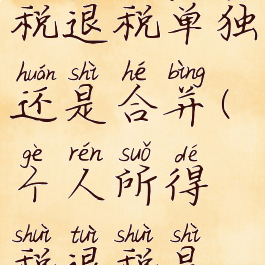 税退税单独
huán shì hé bìng
还是合并(
gè rén suǒ dé
个人所得
shuì tuì shuì shì
税退税是